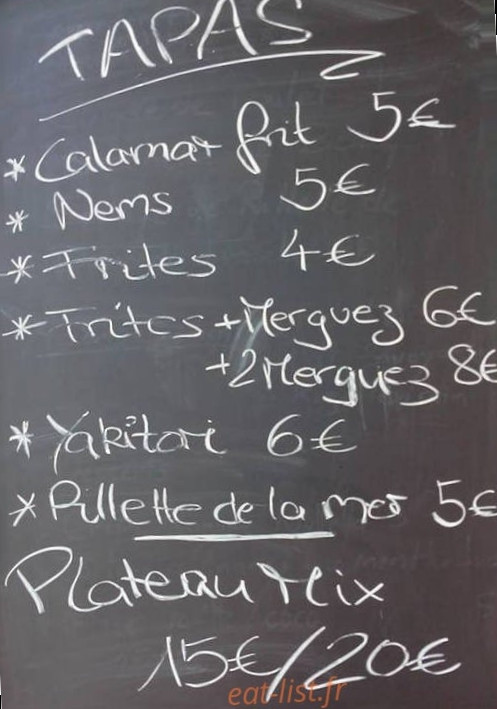 TAPAS
* Calamar frit 5€
* Nems 5€
* Frites 4€
* Frites + Merguez 6€
+2 Merguez 8€
* Yakitori 6€
* Rillette de la mer 5€
Plateau Mix
15€/20€
eat-list.fr